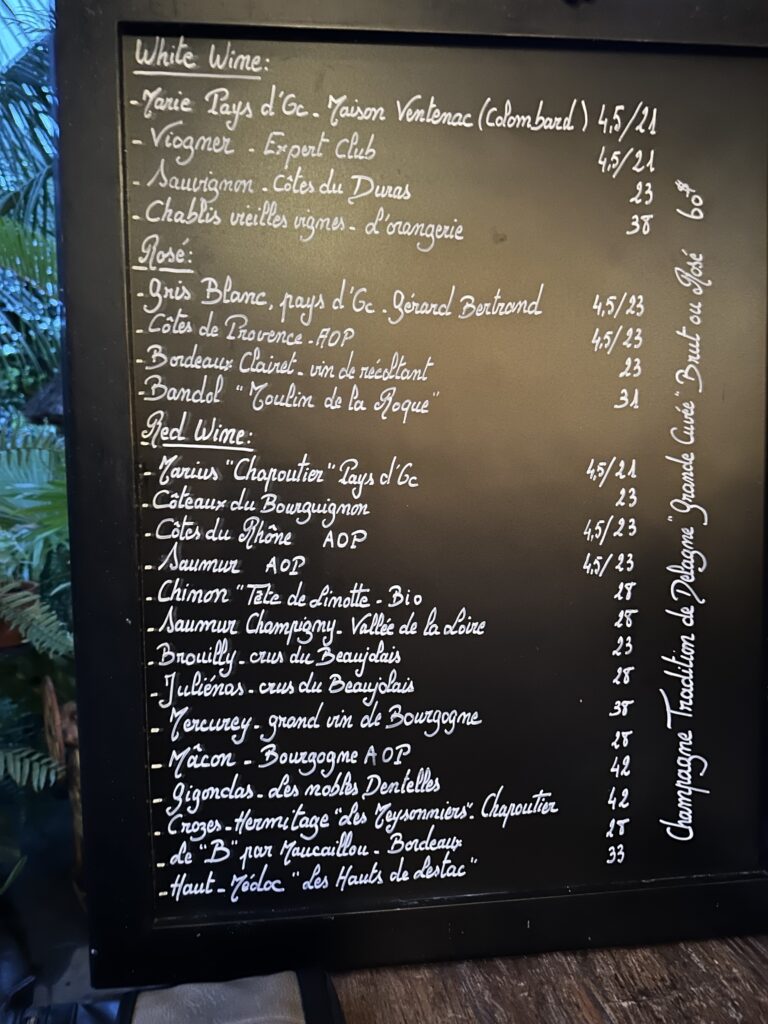 White Wine:
- Marie Pays d'Oc - Maison Ventenac (Colombard) 4,5/21
- Viogner - Expert Club 4,5/21
- Sauvignon - Côtes du Duras 23
- Chablis vieilles vignes - L'orangerie 38
Rosé:
- Gris Blanc, pays d'Oc - Gérard Bertrand 4,5/23
- Côtes de Provence - AOP 4,5/23
- Bordeaux Clairet - vin de récoltant 23
- Bandol "Moulin de la Roque" 31
Red Wine:
- Marius "Chapoutier" Pays d'Oc 4,5/21
- Côteaux du Bourguignon 23
- Côtes du Rhône AOP 4,5/23
- Saumur AOP 4,5/23
- Chinon "Tête de Linotte - Bio 28
- Saumur Champigny - Vallée de la Loire 28
- Brouilly - crus du Beaujolais 23
- Juliénas - crus du Beaujolais 28
- Mercurey - grand vin de Bourgogne 38
- Mâcon - Bourgogne AOP 28
- Gigondas - Les nobles Dentelles 42
- Crozes-Hermitage "Les Meysonniers" - Chapoutier 42
- Le "B" par Maucaillou - Bordeaux 28
- Haut-Médoc "Les Hauts de Lestac" 33
Champagne Tradition de Delagne "Grande Cuvée" Brut ou Rosé 60